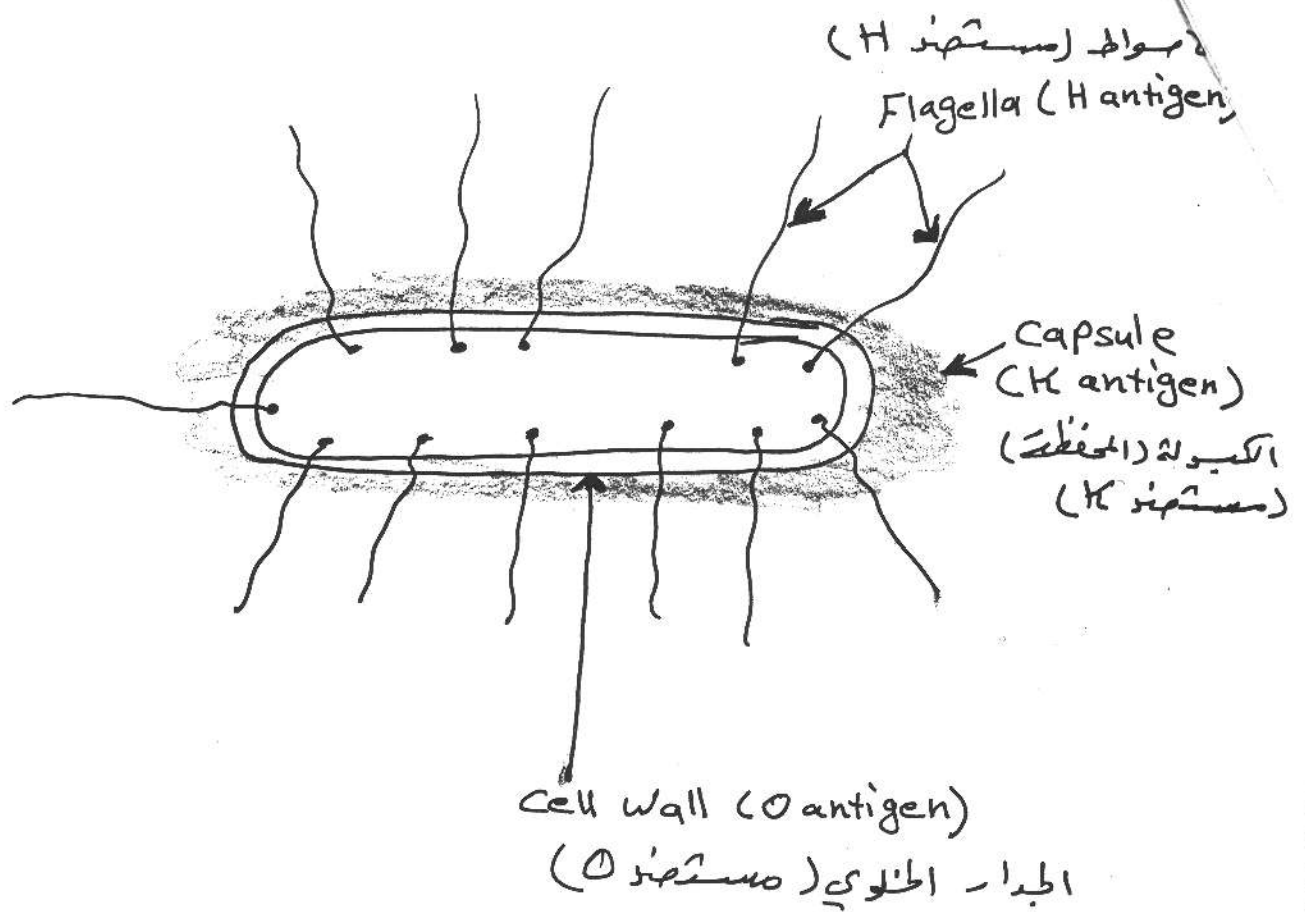 أسواط (مستضد H)
Flagella (H antigen)
Capsule
(K antigen)
الكبسولة (المحفظة)
(مستضد K)
Cell Wall (O antigen)
الجدار الخلوي (مستضد O)